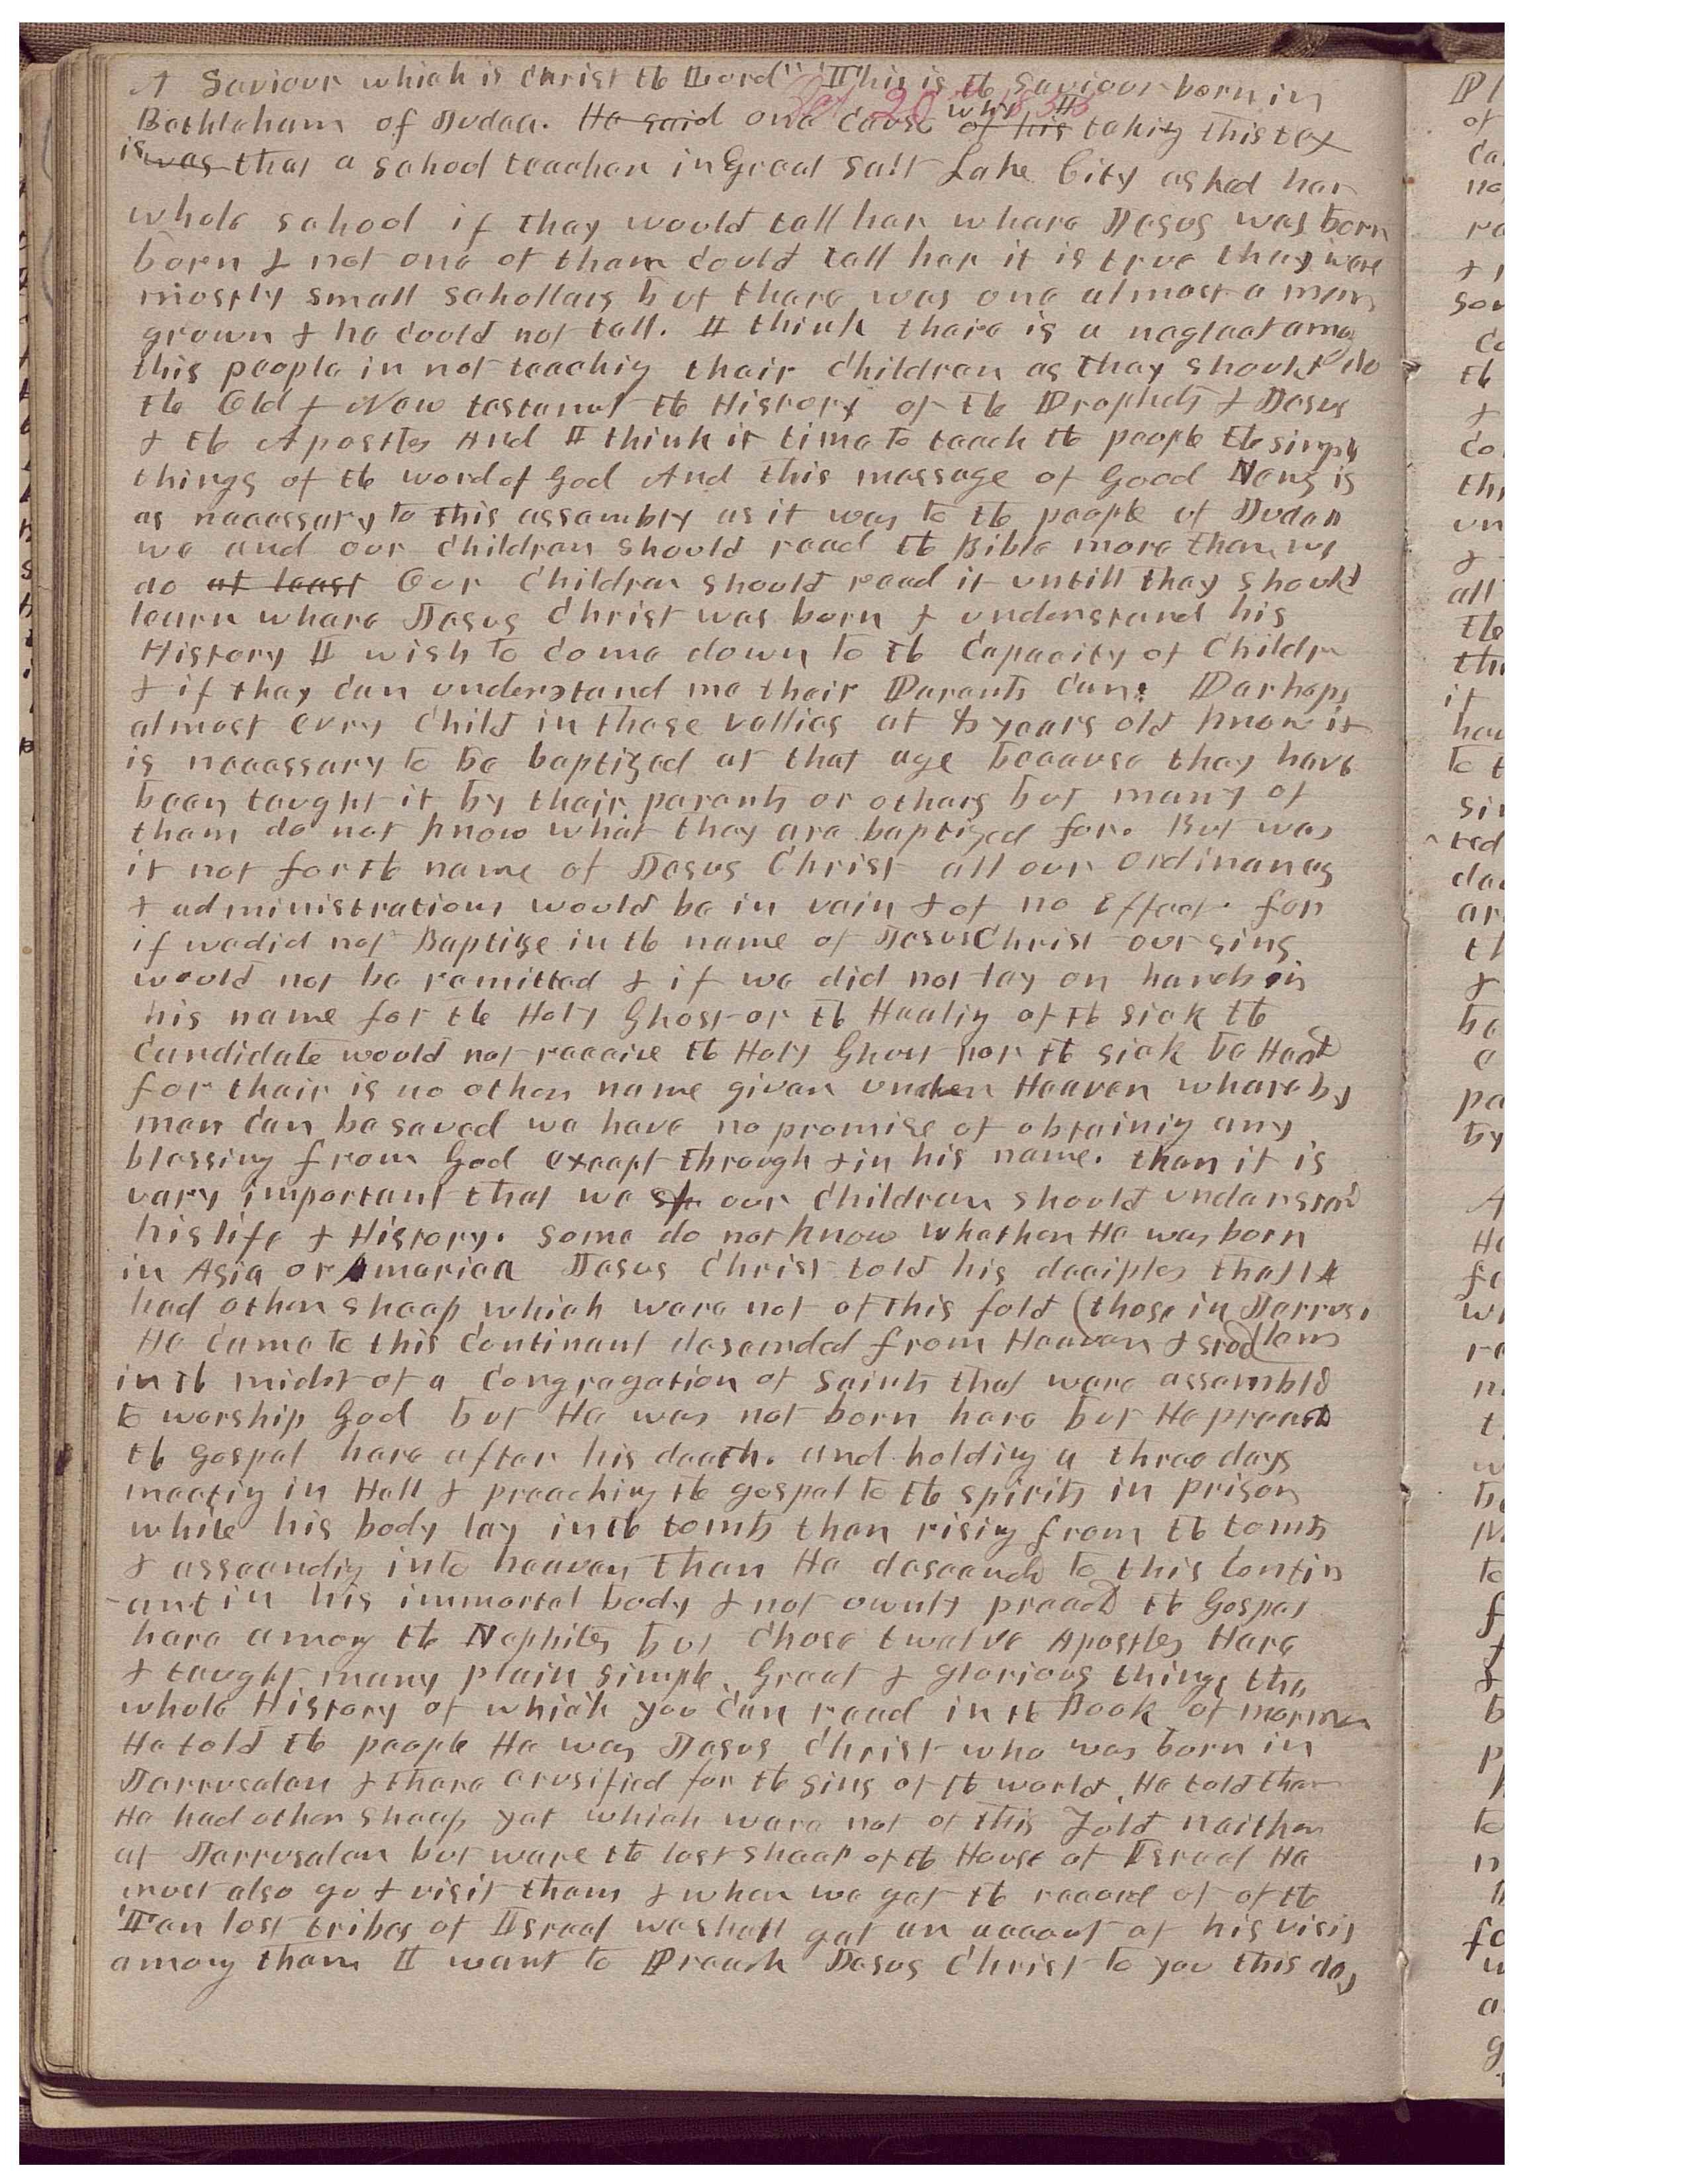 A Saviour which is Christ the Lord" This is the Saviour born in
Bethleham of Judea. He said one cause of his why I taking this tex
is was that a school teacher in Great Salt Lake City asked her
whole school if they would tell her where Jesus was born
born & not one of them could tell her it is true they were
mostly small schollars but there was one almost a man
grown & he could not tell. I think there is a neglect amo
this people in not teaching their children as they should do
the Old & New testament the History of the Prophets & Jesus
& the Apostles And I think it time to teach the people the simple
things of the word of God And this message of Good News is
as necessary to this assembly as it was to the people of Judea
we and our children should read the Bible more than we
do at least Our Children should read it untill they should
learn where Jesus Christ was born & understand his
History I wish to come down to the Capacity of Childr
& if they can understand me their Parents can. Perhaps
almost evry Child in these vallies at 8 years old know it
is necessary to be baptized at that age because they have
been taught it by their parents or others but many of
them do not know what they are baptized for. But was
it not for the name of Jesus Christ all our ordinances
& administrations would be in vain & of no Effect. for
if we did not Baptize in the name of Jesus Christ our sins
would not be remitted & if we did not lay on hands in
his name for the Holy Ghost or the Healing of the sick the
Candidate would not receive the Holy Ghost nor the sick be Heald
for their is no other name given under Heaven whareby
man can be saved we have no promise of obtaining any
blessing from God except through & in his name. then it is
very important that we sh our children should understand
his life & History. some do not know whether He was born
in Asia or America Jesus Christ told his deciples that He
had other sheep which were not of this fold (those in Jerrusa
He came to this Continent desended from Heaven & stood lem)
in the midst of a Congregation of Saints that were assembld
to worship God but He was not born here but He preachd
the gospel here after his death. and holding a three days
meeting in Hell & preaching the gospel to the spirits in prison
while his body lay in the tomb then rising from the tomb
& asscending into heaven Then He descended to this Contin
-ent in his immortal body & not ownly preachd the Gospel
here among the Nephites but chose twelve Apostles Here
& taught many plain simple Great & glorious things the
whole History of which you can read in the Book of mormon
He told the people He was Jesus Christ who was born in
Jerrusalem & there crusified for the sins of the world. He told them
He had other sheep yet which were not of this fold neither
at Jerrusalem but were the lost sheep of the House of Israel He
must also go & visit them & when we get the record of of the
Ten lost tribes of Israel we shall get an account of his visit
among them I want to Preach Jesus Christ to you this day